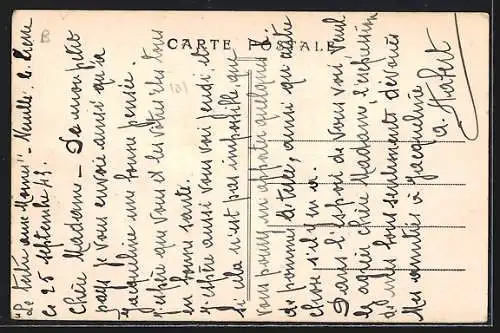 CARTE POSTALE
"Le tertre aux Mones" - Neuillé le Lierre
Ce 25 septembre 43.
Chère Madame - De mon petit
pays je vous envoie ainsi qu'à
Jacqueline une bonne pensée.
J'espère que vous et les vôtres êtes tous
en bonne santé.
J'espère aussi vous voir jeudi et
si cela n'est pas impossible que
vous pourrez m'apporter quelques k.
de pommes de terre, ainsi qu'autre
chose s'il y en a.
Dans l'espoir de vous voir, veuil
lez agréer chère Madame l'expression
de mes bons sentiments dévoués
Mes amitiés à Jacqueline